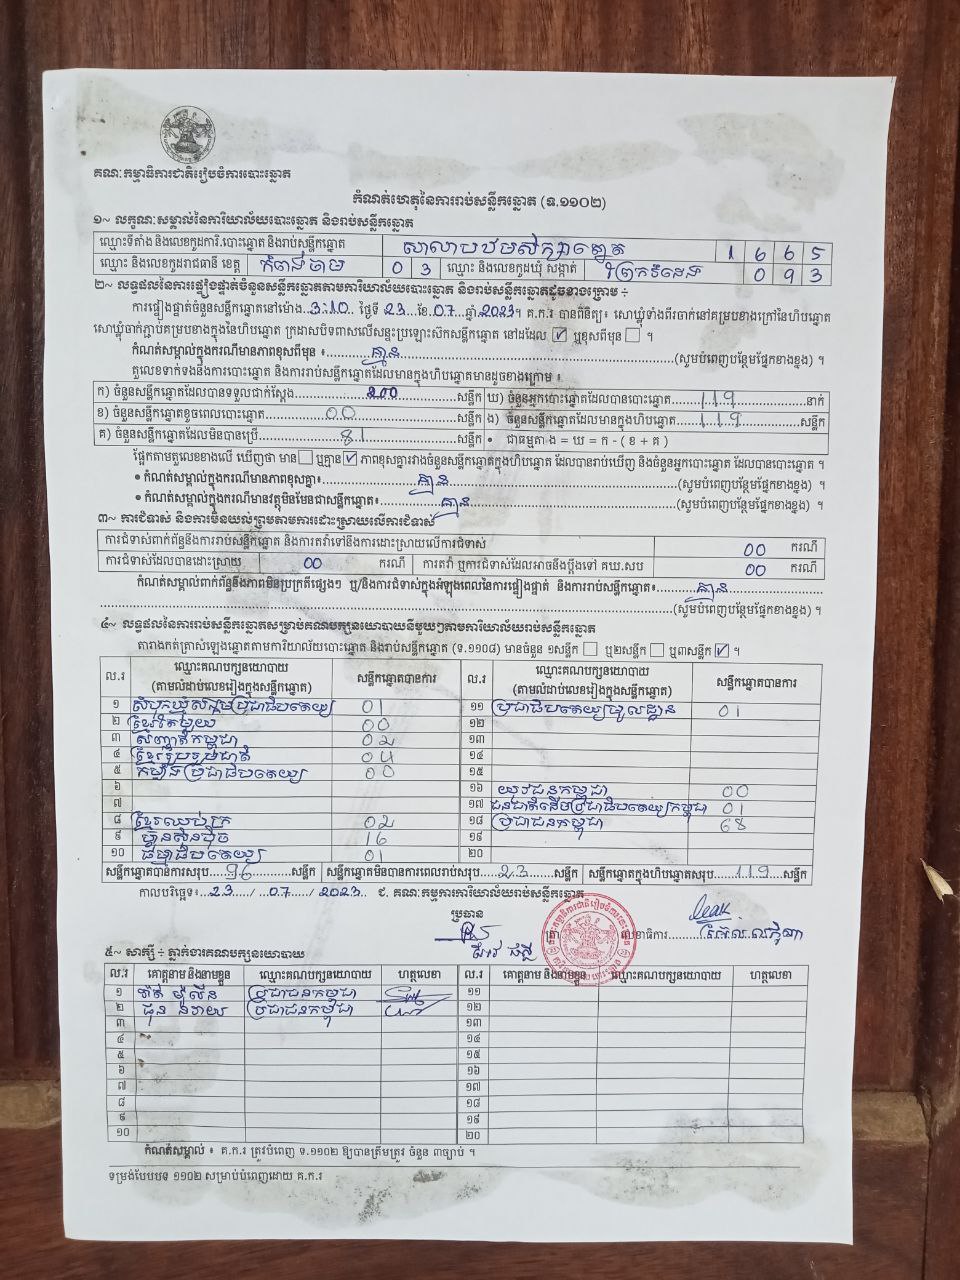 គណៈកម្មាធិការជាតិរៀបចំការបោះឆ្នោត
កំណត់ហេតុនៃការរាប់សន្លឹកឆ្នោត (ទ.១១០២)
១~ លក្ខណៈសម្គាល់នៃការិយាល័យបោះឆ្នោត និងរាប់សន្លឹកឆ្នោត
ឈ្មោះទីតាំង និងលេខកូដការិ.បោះឆ្នោត និងរាប់សន្លឹកឆ្នោត សាលាបឋមសិក្សា 1665
ឈ្មោះ និងលេខកូដរាជធានី ខេត្ត កំពង់ចាម 03 ឈ្មោះ និងលេខកូដឃុំ សង្កាត់ 093
២~ លទ្ធផលនៃការផ្ទៀងផ្ទាត់ចំនួនសន្លឹកឆ្នោតតាមការិយាល័យបោះឆ្នោត និងរាប់សន្លឹកឆ្នោតដូចខាងក្រោម ÷
ការផ្ទៀងផ្ទាត់ចំនួនសន្លឹកឆ្នោតនៅម៉ោង 3:10 ថ្ងៃទី 23 ខែ 07 ឆ្នាំ 2023។ គ.ក.រ បានពិនិត្យ៖ សោឃ្លុំទាំងពីរចាក់នៅគម្របខាងក្រៅនៃហិបឆ្នោត
សោឃ្លុំចាក់ភ្ជាប់គម្របខាងក្នុងនៃហិបឆ្នោត ក្រដាសបិទពាសលើសន្ទះប្រឡោះស៊កសន្លឹកឆ្នោត នៅដដែល ☑ ឬខុសពីមុន ☐ ។
កំណត់សម្គាល់ក្នុងករណីមានភាពខុសពីមុន ៖ គ្មាន (សូមបំពេញបន្ថែមផ្នែកខាងខ្នង) ។
តួលេខទាក់ទងនឹងការបោះឆ្នោត និងការរាប់សន្លឹកឆ្នោតដែលមានក្នុងហិបឆ្នោតមានដូចខាងក្រោម ៖
ក) ចំនួនសន្លឹកឆ្នោតដែលបានទទួលជាក់ស្តែង 200 សន្លឹក ឃ) ចំនួនអ្នកបោះឆ្នោតដែលបានបោះឆ្នោត 119 នាក់
ខ) ចំនួនសន្លឹកឆ្នោតខូចពេលបោះឆ្នោត 00 សន្លឹក ង) ចំនួនសន្លឹកឆ្នោតដែលមានក្នុងហិបឆ្នោត 119 សន្លឹក
គ) ចំនួនសន្លឹកឆ្នោតដែលមិនបានប្រើ 81 សន្លឹក • ជាធម្មតា ង = ឃ = ក - ( ខ + គ )
ផ្អែកតាមតួលេខខាងលើ ឃើញថា មាន ☐ ឬគ្មាន ☑ ភាពខុសគ្នារវាងចំនួនសន្លឹកឆ្នោតក្នុងហិបឆ្នោត ដែលបានរាប់ឃើញ និងចំនួនអ្នកបោះឆ្នោត ដែលបានបោះឆ្នោត ។
• កំណត់សម្គាល់ក្នុងករណីមានភាពខុសគ្នា៖ គ្មាន (សូមបំពេញបន្ថែមផ្នែកខាងខ្នង) ។
• កំណត់សម្គាល់ក្នុងករណីមានវត្ថុមិនមែនជាសន្លឹកឆ្នោត៖ គ្មាន (សូមបំពេញបន្ថែមផ្នែកខាងខ្នង) ។
៣~ ការជំទាស់ និងការមិនយល់ព្រមតាមការដោះស្រាយលើការជំទាស់
ការជំទាស់ពាក់ព័ន្ធនឹងការរាប់សន្លឹកឆ្នោត និងការតវ៉ាទៅនឹងការដោះស្រាយលើការជំទាស់ 00 ករណី
ការជំទាស់ដែលបានដោះស្រាយ 00 ករណី ការតវ៉ា ឬការជំទាស់ដែលអាចនឹងប្តឹងទៅ គឃ.សប 00 ករណី
កំណត់សម្គាល់ពាក់ព័ន្ធនឹងភាពមិនប្រក្រតីផ្សេងៗ ឬ/និងការជំទាស់ក្នុងអំឡុងពេលនៃការផ្ទៀងផ្ទាត់ និងការរាប់សន្លឹកឆ្នោត៖ គ្មាន
(សូមបំពេញបន្ថែមផ្នែកខាងខ្នង) ។
៤~ លទ្ធផលនៃការរាប់សន្លឹកឆ្នោតសម្រាប់គណបក្សនយោបាយនីមួយៗតាមការិយាល័យរាប់សន្លឹកឆ្នោត
តារាងកត់ត្រាសំឡេងឆ្នោតតាមការិយាល័យបោះឆ្នោត និងរាប់សន្លឹកឆ្នោត (ទ.១១០៨) មានចំនួន ១សន្លឹក ☐ ឬ២សន្លឹក ☐ ឬ៣សន្លឹក ☑ ។
ល.រ ឈ្មោះគណបក្សនយោបាយ (តាមលំដាប់លេខរៀងក្នុងសន្លឹកឆ្នោត) សន្លឹកឆ្នោតបានការ ល.រ ឈ្មោះគណបក្សនយោបាយ (តាមលំដាប់លេខរៀងក្នុងសន្លឹកឆ្នោត) សន្លឹកឆ្នោតបានការ
១ សំបុកឃ្មុំសង្គមប្រជាធិបតេយ្យ 01 ១១ ប្រជាធិបតេយ្យមូលដ្ឋាន 01
២ ខ្មែរតែមួយ 00 ១២
៣ សញ្ជាតិកម្ពុជា 02 ១៣
៤ ខ្មែររួបរួមជាតិ 04 ១៤
៥ កម្លាំងប្រជាធិបតេយ្យ 00 ១៥
៦ ១៦ យុវជនកម្ពុជា 00
៧ ១៧ ជនជាតិដើមប្រជាធិបតេយ្យកម្ពុជា 01
៨ ខ្មែរឈប់ក្រ 02 ១៨ ប្រជាជនកម្ពុជា 68
៩ ហ្វ៊ុនស៊ិនប៉ិច 16 ១៩
១០ ធម្មាធិបតេយ្យ 01 ២០
សន្លឹកឆ្នោតបានការសរុប 96 សន្លឹក សន្លឹកឆ្នោតមិនបានការពេលរាប់សរុប 23 សន្លឹក សន្លឹកឆ្នោតក្នុងហិបឆ្នោតសរុប 119 សន្លឹក
កាលបរិច្ឆេទ៖ 23 / 07 / 2023 ជ. គណៈកម្មការការិយាល័យរាប់សន្លឹកឆ្នោត
ប្រធាន
ត្រា លេខាធិការ
៥~ សាក្សី ÷ ភ្នាក់ងារគណបក្សនយោបាយ
ល.រ គោត្តនាម និងនាមខ្លួន ឈ្មោះគណបក្សនយោបាយ ហត្ថលេខា ល.រ គោត្តនាម និងនាមខ្លួន ឈ្មោះគណបក្សនយោបាយ ហត្ថលេខា
១ ប្រជាជនកម្ពុជា ១១
២ ប្រជាជនកម្ពុជា ១២
៣ ១៣
៤ ១៤
៥ ១៥
៦ ១៦
៧ ១៧
៨ ១៨
៩ ១៩
១០ ២០
កំណត់សម្គាល់ ៖ គ.ក.រ ត្រូវបំពេញ ទ.១១០២ ឱ្យបានត្រឹមត្រូវ ចំនួន ៣ច្បាប់ ។
ទម្រង់បែបបទ ១១០២ សម្រាប់បំពេញដោយ គ.ក.រ